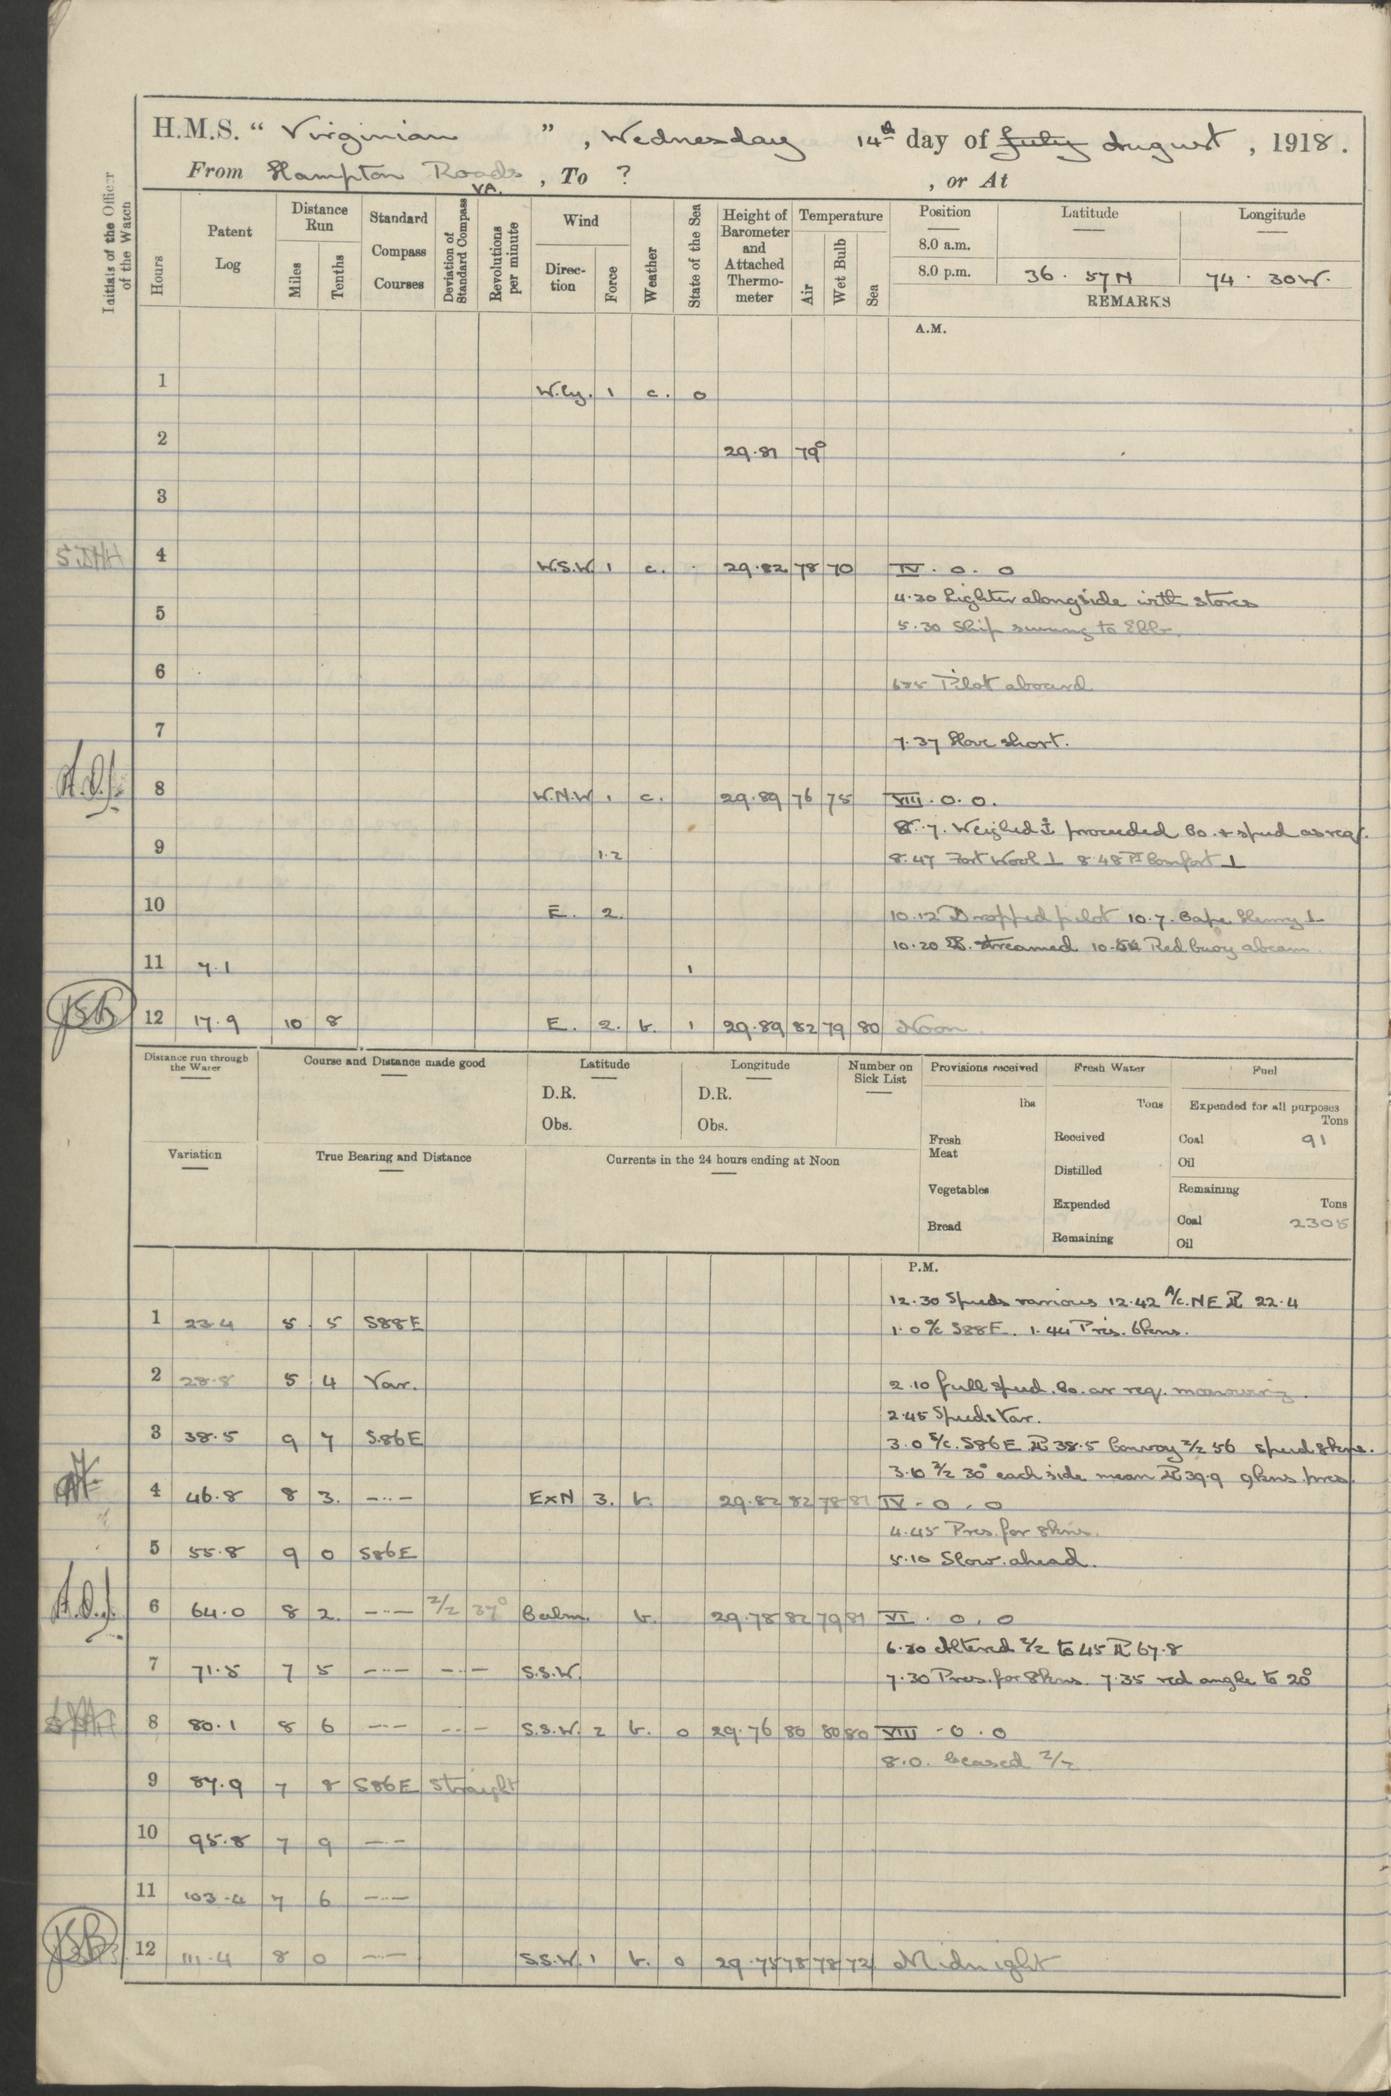 H.M.S. " Virginian " , Wednesday 14th day of July August , 1918.
From Hampton Roads VA. , To ? , or At
Initials of the Officer of the Watch
Hours
Patent Log
Distance Run
Miles
Tenths
Standard Compass Courses
Deviation of Standard Compass
Revolutions per minute
Wind
Direction
Force
Weather
State of the Sea
Height of Barometer and Attached Thermometer
Temperature
Air
Wet Bulb
Sea
Position Latitude Longitude
8.0 a.m.
8.0 p.m. 36 . 57 N 74 . 30 W.
REMARKS
A.M.
1 W.ly. 1 c. 0
2 29.81 79°
3
4 W.S.W. 1 c. . 29.82 78 70 IV . 0 . 0
4.30 Lighter alongside with stores
5
5.30 Ship swung to Ebb.
6
Pilot aboard
7
7.37 Hove short.
A.O.J.
8 W.N.W 1 c. 29.89 76 75 VIII . 0 . 0.
8.7. Weighed ⚓ proceeded Co. & speed as req.
9 1.2 8.47 Fort Wool ⊥ 8.48 Pt Comfort ⊥
10 E. 2. 10.12 Dropped pilot 10.7. Cape Henry ⊥
10.20 PL streamed Red buoy abeam
11 7.1 1
JSB
12 17.9 10 8 E. 2. b. 1 29.89 82 79 80 Noon.
Distance run through the Water
Course and Distance made good
Latitude
D.R.
Obs.
Longitude
D.R.
Obs.
Number on Sick List
Provisions received
lbs
Fresh Meat
Vegetables
Bread
Fresh Water
Tons
Received
Distilled
Expended
Remaining
Fuel
Expended for all purposes
Tons
Coal 91
Oil
Remaining
Tons
Coal 2305
Oil
Variation
True Bearing and Distance
Currents in the 24 hours ending at Noon
P.M.
12.30 Speeds various 12.42 A/c. NE PL 22.4
1 23.4 5 5 S88E 1.0 a/c S88E. 1.44 Pres. 6kns.
2 28.8 5 4 Var. 2.10 full speed. Co. as req.
2.45 Speeds Var.
3 38.5 9 7 S86E 3.0 S/c. S86E PL 38.5 Convoy Z/Z 56 speed 8kns.
3.10 Z/Z 30° each side mean PL 39.9 9kns. pres.
4 46.8 8 3. —··— ExN 3. b. 29.82 82 78 81 IV . 0 . 0
4.45 Pres. for 8kns.
5 55.8 9 0 S86E 5.10 Slow ahead.
A.O.J.
6 64.0 8 2. —··— Z/Z 37° Calm. b. 29.78 82 79 81 VI . 0 . 0
6.30 Altered Z/Z to 45 PL 67.8
7 71.5 7 5 —··— —··— S.S.W. 7.30 Pres. for 8kns. 7.35 red angle to 20°
8 80.1 8 6 —··— —··— S.S.W. 2 b. 0 29.76 80 80 80 VIII . 0 . 0
8.0. Ceased Z/Z
9 87.9 7 8 S86E Straight
10 95.8 7 9 —··—
11 103.4 7 6 —··—
JSB
12 111.4 8 0 —··— S.S.W. 1 b. 0 29.75 78 78 72 Midnight